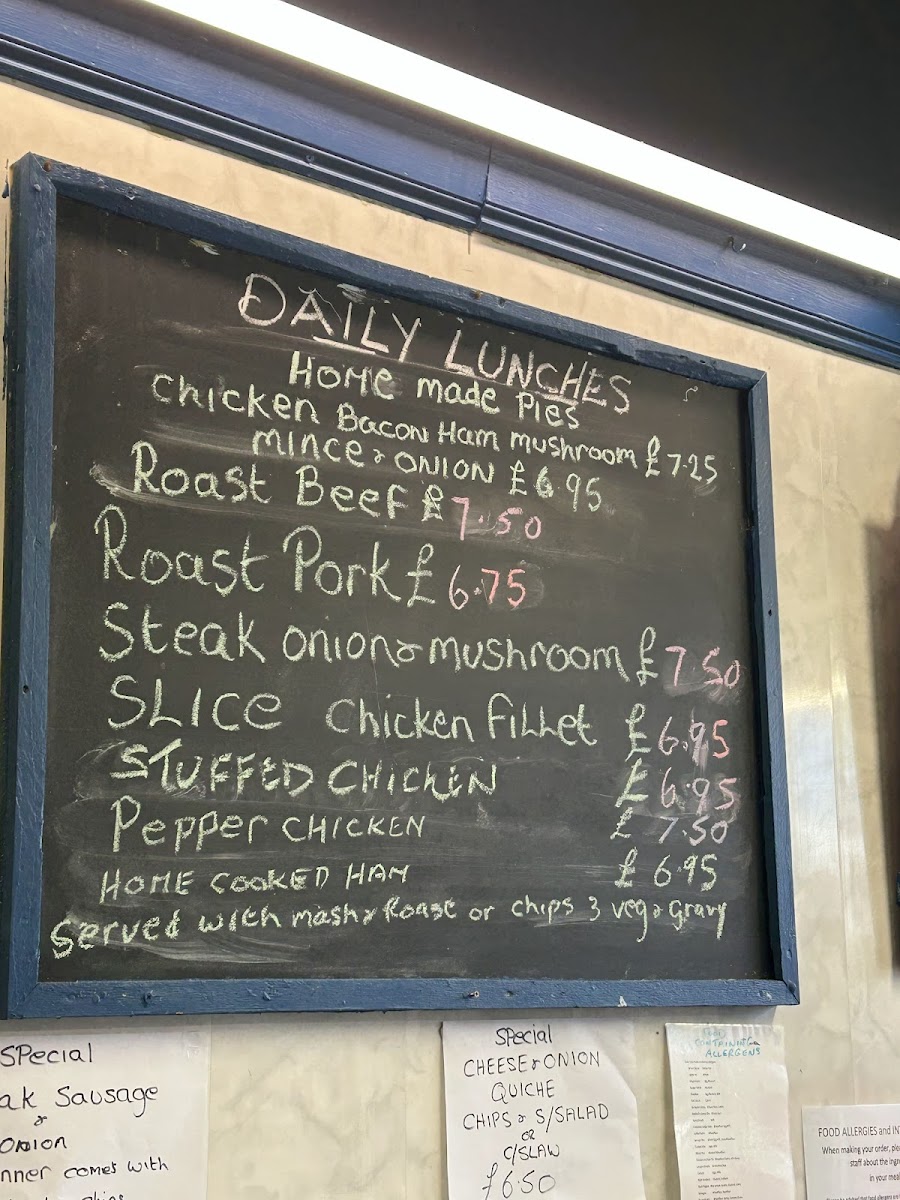 DAILY LUNCHES
HOME made Pies
Chicken Bacon Ham mushroom £7.25
mince & ONION £6.95
Roast Beef £7.50
Roast Pork £6.75
Steak onion & mushroom £7.50
SLICE Chicken fillet £6.95
STUFFED CHICKEN £6.95
Pepper CHICKEN £7.50
HOME COOKED HAM £6.95
Served with mash & Roast or chips 3 veg & Gravy
SPecial
ak Sausage
&
ONION
nner comes with
SPecial
CHEESE & ONION
QUICHE
CHIPS & S/SALAD
OR
C/SLAW
£6.50
ALLERGENS
FOOD ALLERGIES and IN
When making your order, ple
staff about the ingr
in your meal